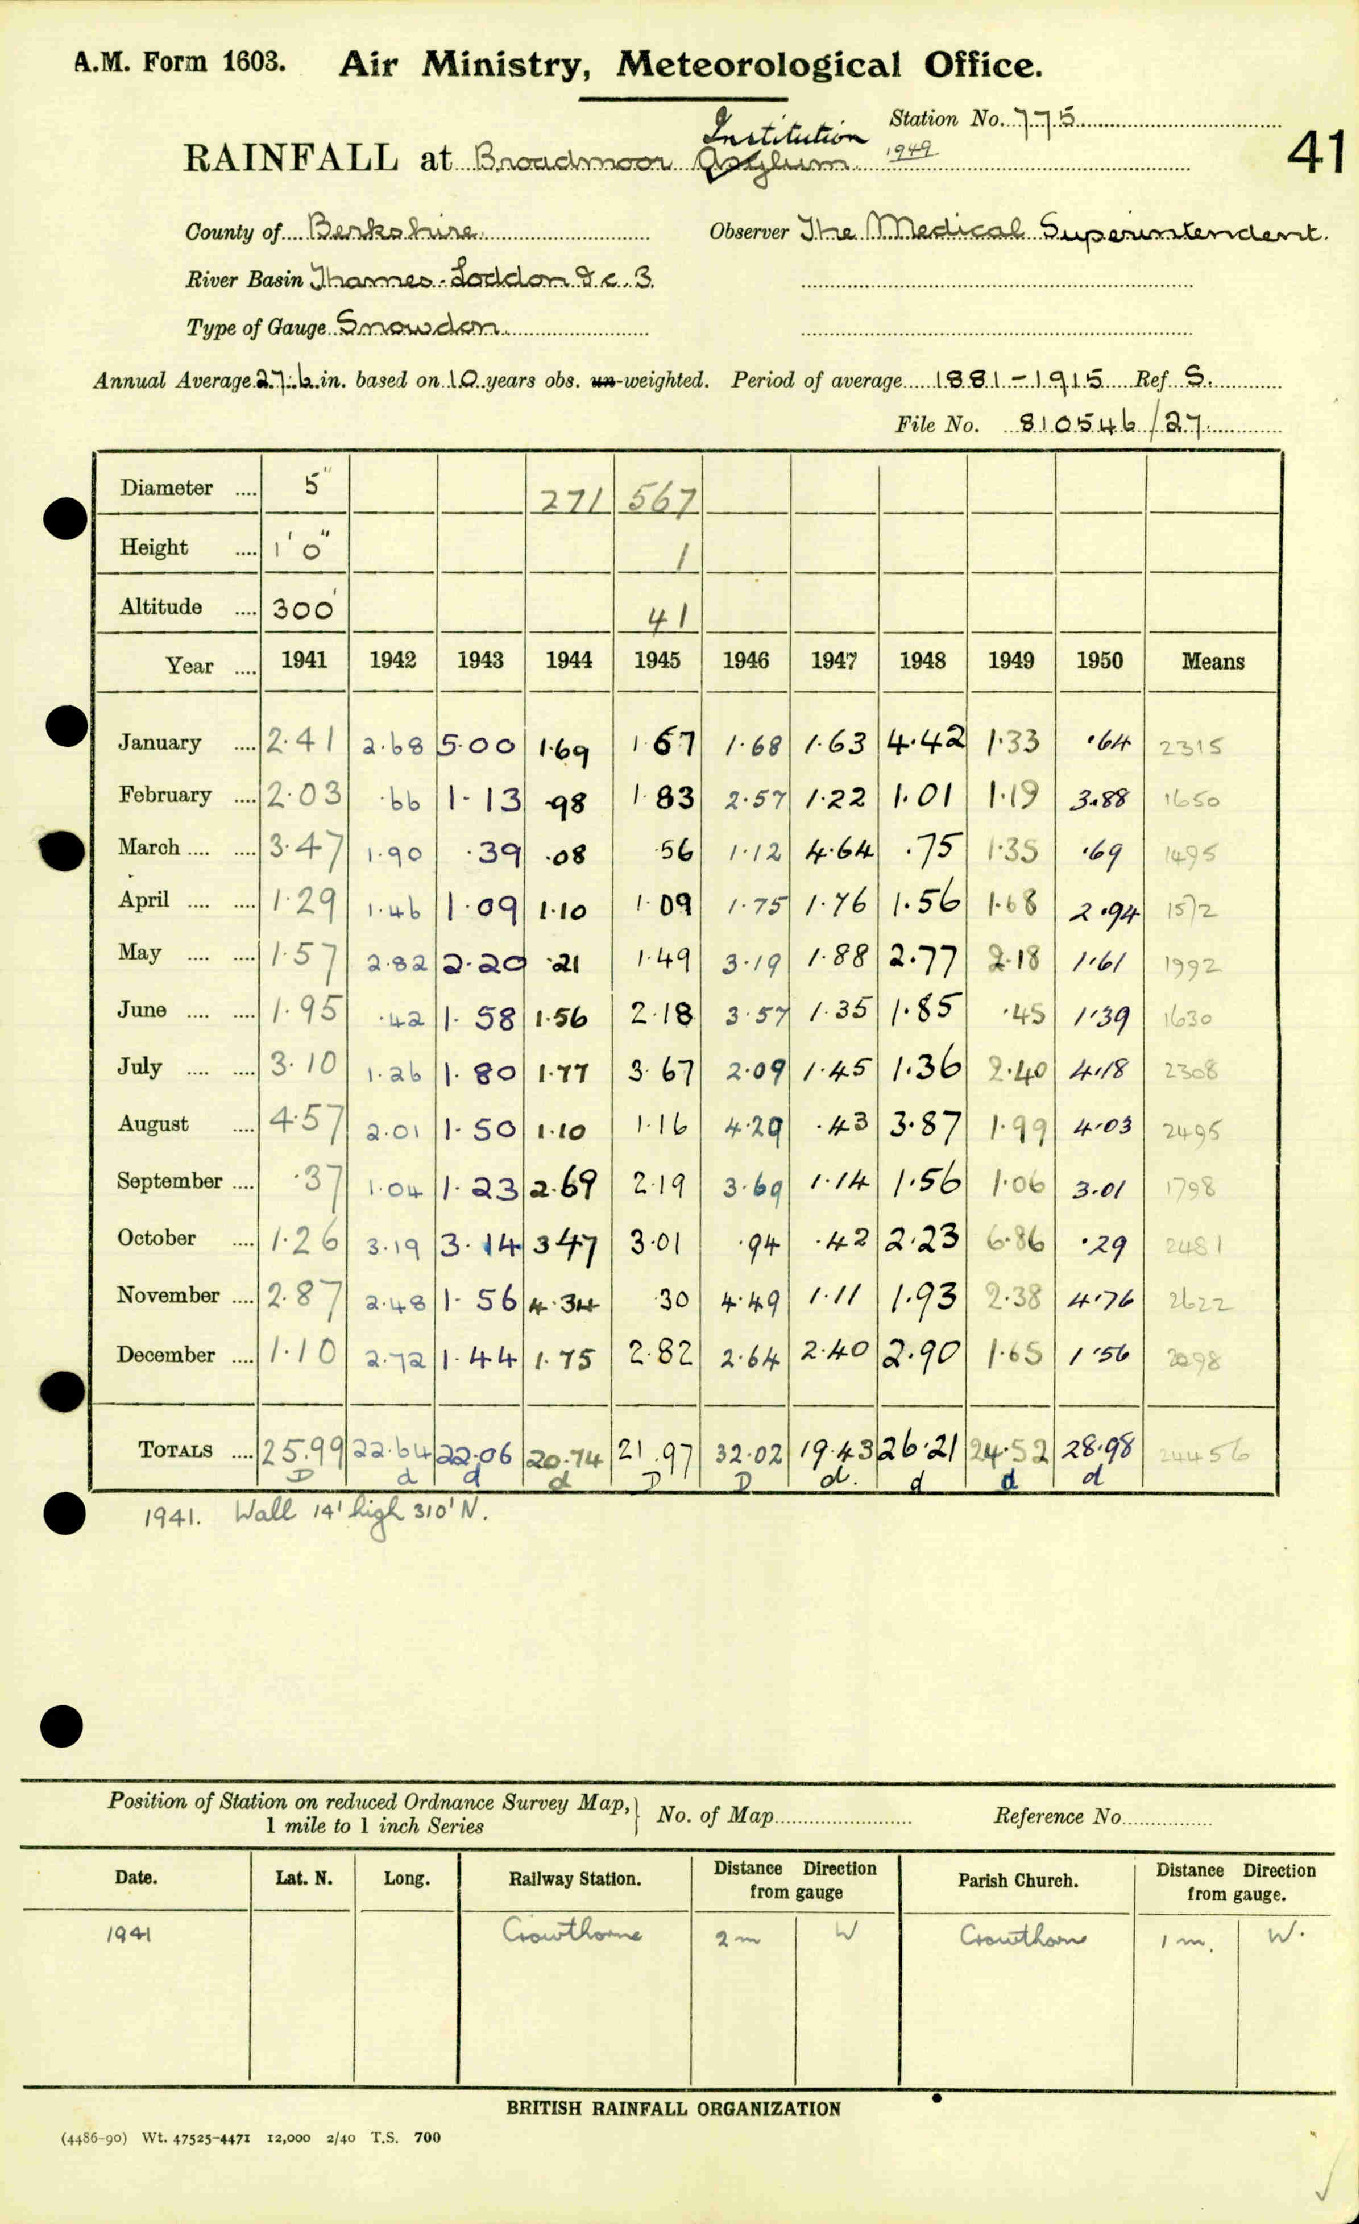 A.M. Form 1603. Air Ministry, Meteorological Office.
Station No. 775
Institution
RAINFALL at Broadmoor Asylum 1949
41
County of Berkshire Observer The Medical Superintendent.
River Basin Thames-Loddon &c. 3
Type of Gauge Snowdon
Annual Average 27.6 in. based on 10 years obs. un-weighted. Period of average 1881-1915 Ref S.
File No. 810546/27
Diameter .... 5" 271 567
Height .... 1'0" 1
Altitude .... 300' 41
Year .... 1941 1942 1943 1944 1945 1946 1947 1948 1949 1950 Means
January .... 2.41 2.68 5.00 1.69 1.67 1.68 1.63 4.42 1.33 .64 2315
February .... 2.03 .66 1.13 .98 1.83 2.57 1.22 1.01 1.19 3.88 1650
March .... .... 3.47 1.90 .39 .08 .56 1.12 4.64 .75 1.35 .69 1495
April .... .... 1.29 1.46 1.09 1.10 1.09 1.75 1.76 1.56 1.68 2.94 1572
May .... .... 1.57 2.82 2.20 .21 1.49 3.19 1.88 2.77 2.18 1.61 1992
June .... .... 1.95 .42 1.58 1.56 2.18 3.57 1.35 1.85 .45 1.39 1630
July .... .... 3.10 1.26 1.80 1.77 3.67 2.09 1.45 1.36 2.40 4.18 2308
August .... 4.57 2.01 1.50 1.10 1.16 4.29 .43 3.87 1.99 4.03 2495
September .... .37 1.04 1.23 2.69 2.19 3.69 1.14 1.56 1.06 3.01 1798
October .... 1.26 3.19 3.14 3.47 3.01 .94 .42 2.23 6.86 .29 2481
November .... 2.87 2.48 1.56 4.34 .30 4.49 1.11 1.93 2.38 4.76 2622
December .... 1.10 2.72 1.44 1.75 2.82 2.64 2.40 2.90 1.65 1.56 2098
TOTALS .... 25.99 22.64 22.06 20.74 21.97 32.02 19.43 26.21 24.52 28.98 24456
D d d d D D d. d d d
1941. Wall 14' high 310' N.
Position of Station on reduced Ordnance Survey Map, } No. of Map Reference No.
1 mile to 1 inch Series
Date. Lat. N. Long. Railway Station. Distance Direction Parish Church. Distance Direction
from gauge from gauge.
1941 Crowthorne 2 m W Crowthorn 1 m. W.
BRITISH RAINFALL ORGANIZATION
(4486-90) Wt. 47525-4471 12,000 2/40 T.S. 700